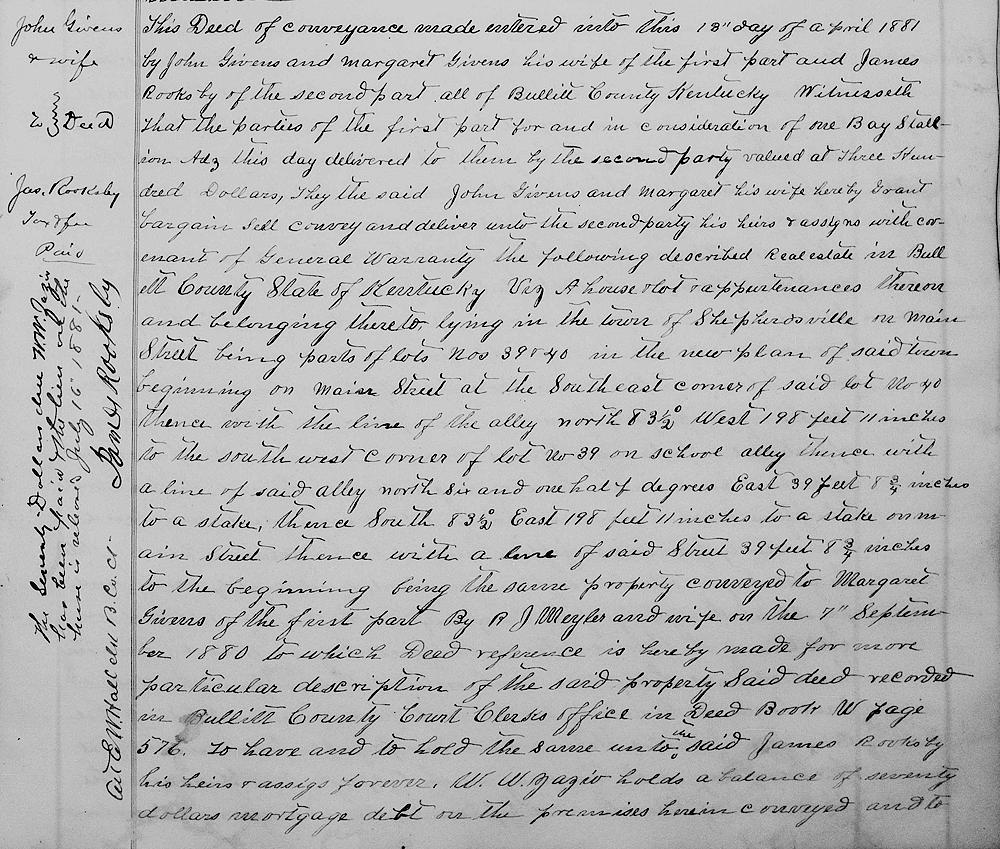 John Givens
& wife
To Deed
Jas. Rooksby
Tax & fee
Paid
This Deed of conveyance made entered into this 13" day of april 1881
by John Givens and Margaret Givens his wife of the first part and James
Rooksby of the second part all of Bullitt County Kentucky Witnesseth
That the parties of the first part for and in consideration of one Bay Stall-
ion this day delivered to them by the second party valued at Three Hun-
dred Dollars, They the said John Givens and Margaret his wife hereby Grant
bargain Sell convey and deliver unto the second party his heirs & assigns with cov-
enant of General Warranty the following described Real estate in Bull
itt County State of Kentucky Viz A house & lot & appurtenances thereon
and belonging thereto lying in the town of Shepherdsville on Main
Street being parts of lots Nos 39 & 40 in the new plan of said town
beginning on Main Street at the South east corner of said lot No 40
thence with the line of the alley north 83½° West 198 feet 11 inches
to the south west corner of lot No 39 on school alley thence with
a line of said alley north six and one half degrees East 39 feet 8¾ inches
to a stake, thence South 83½° East 198 feet 11 inches to a stake on m-
ain Street thence with a line of said Street 39 feet 8¾ inches
to the beginning being the same property conveyed to Margaret
Givens of the first part By R J Meyler and wife on the 7" Septem-
ber 1880 to which Deed reference is hereby made for more
particular description of the said property Said deed recorded
in Bullitt County Court Clerks office in Deed Book W page
576. To have and to hold the same unto the said James Rooksby
his heirs & assigs forever. W. W. holds a balance of seventy
dollars mortgage debt on the premises herein conveyed and to
The Seventy Dollars due W.W.
has been paid & the lien
herein is released July 16" 1881-
James Rooksby
Att E W Hall